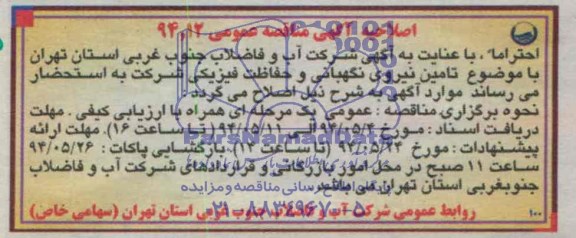 اصلاحیه آگهی مناقصه عمومی ۱۲-۹۴
احتراما"، با عنایت به آگهی شرکت آب و فاضلاب جنوب غربی استان تهران
با موضوع تامین نیروی نگهبانی و حفاظت فیزیکی شرکت به استحضار
می رساند موارد آگهی به شرح ذیل اصلاح می گردد:
نحوه برگزاری مناقصه: عمومی یک مرحله ای همراه با ارزیابی کیفی. مهلت
دریافت اسناد: مورخ ۹۴/۰۵/۴ الی ۹۴/۰۵/۱۱ (تا ساعت ۱۶). مهلت ارائه
پیشنهادات: مورخ ۹۴/۰۵/۲۴ (تا ساعت ۱۳). بازگشایی پاکات: ۹۴/۰۵/۲۶
ساعت ۱۱ صبح در محل امور بازرگانی و قراردادهای شرکت آب و فاضلاب
جنوبغربی استان تهران می باشد.
روابط عمومی شرکت آب و فاضلاب جنوب غربی استان تهران (سهامی خاص)
۱۰۰
ParsNamadData
رسانی مناقصه ومزایده
۰۲۱-۸۸۳۴۹۶۷۰-۵